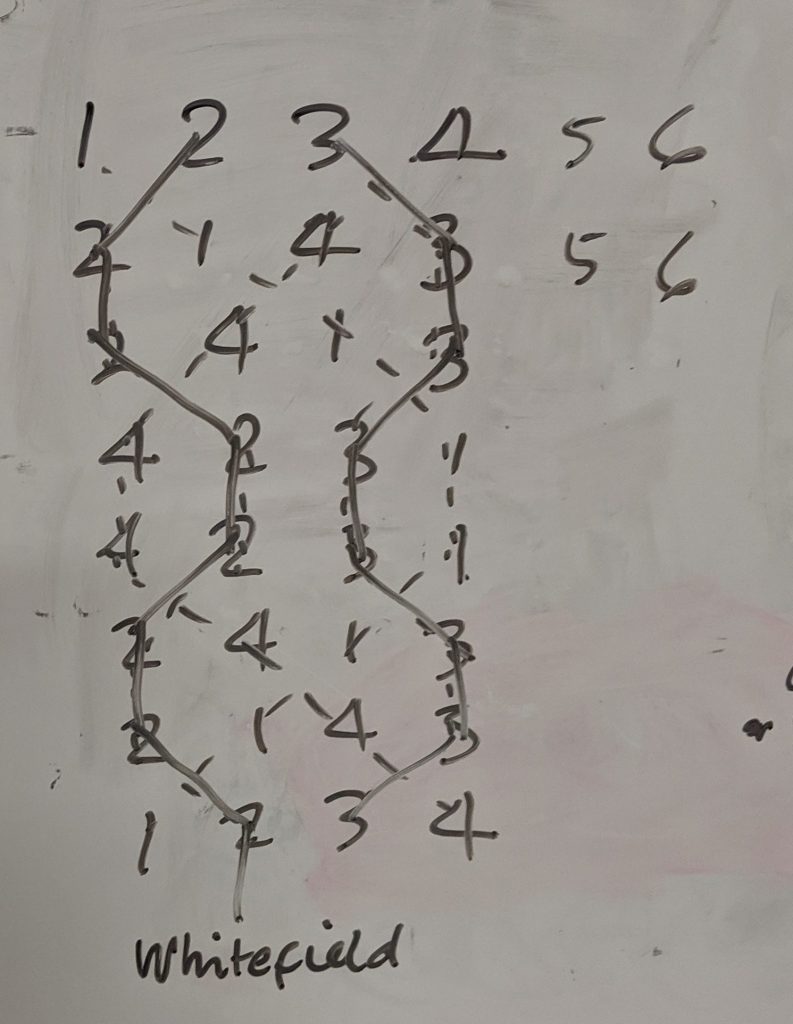 1. 2 3 4 5 6
2 1 4 3 5 6
2 4 1 3
4 2 3 1
4 2 3 1
2 4 1 3
2 1 4 3
1 2 3 4
Whitefield